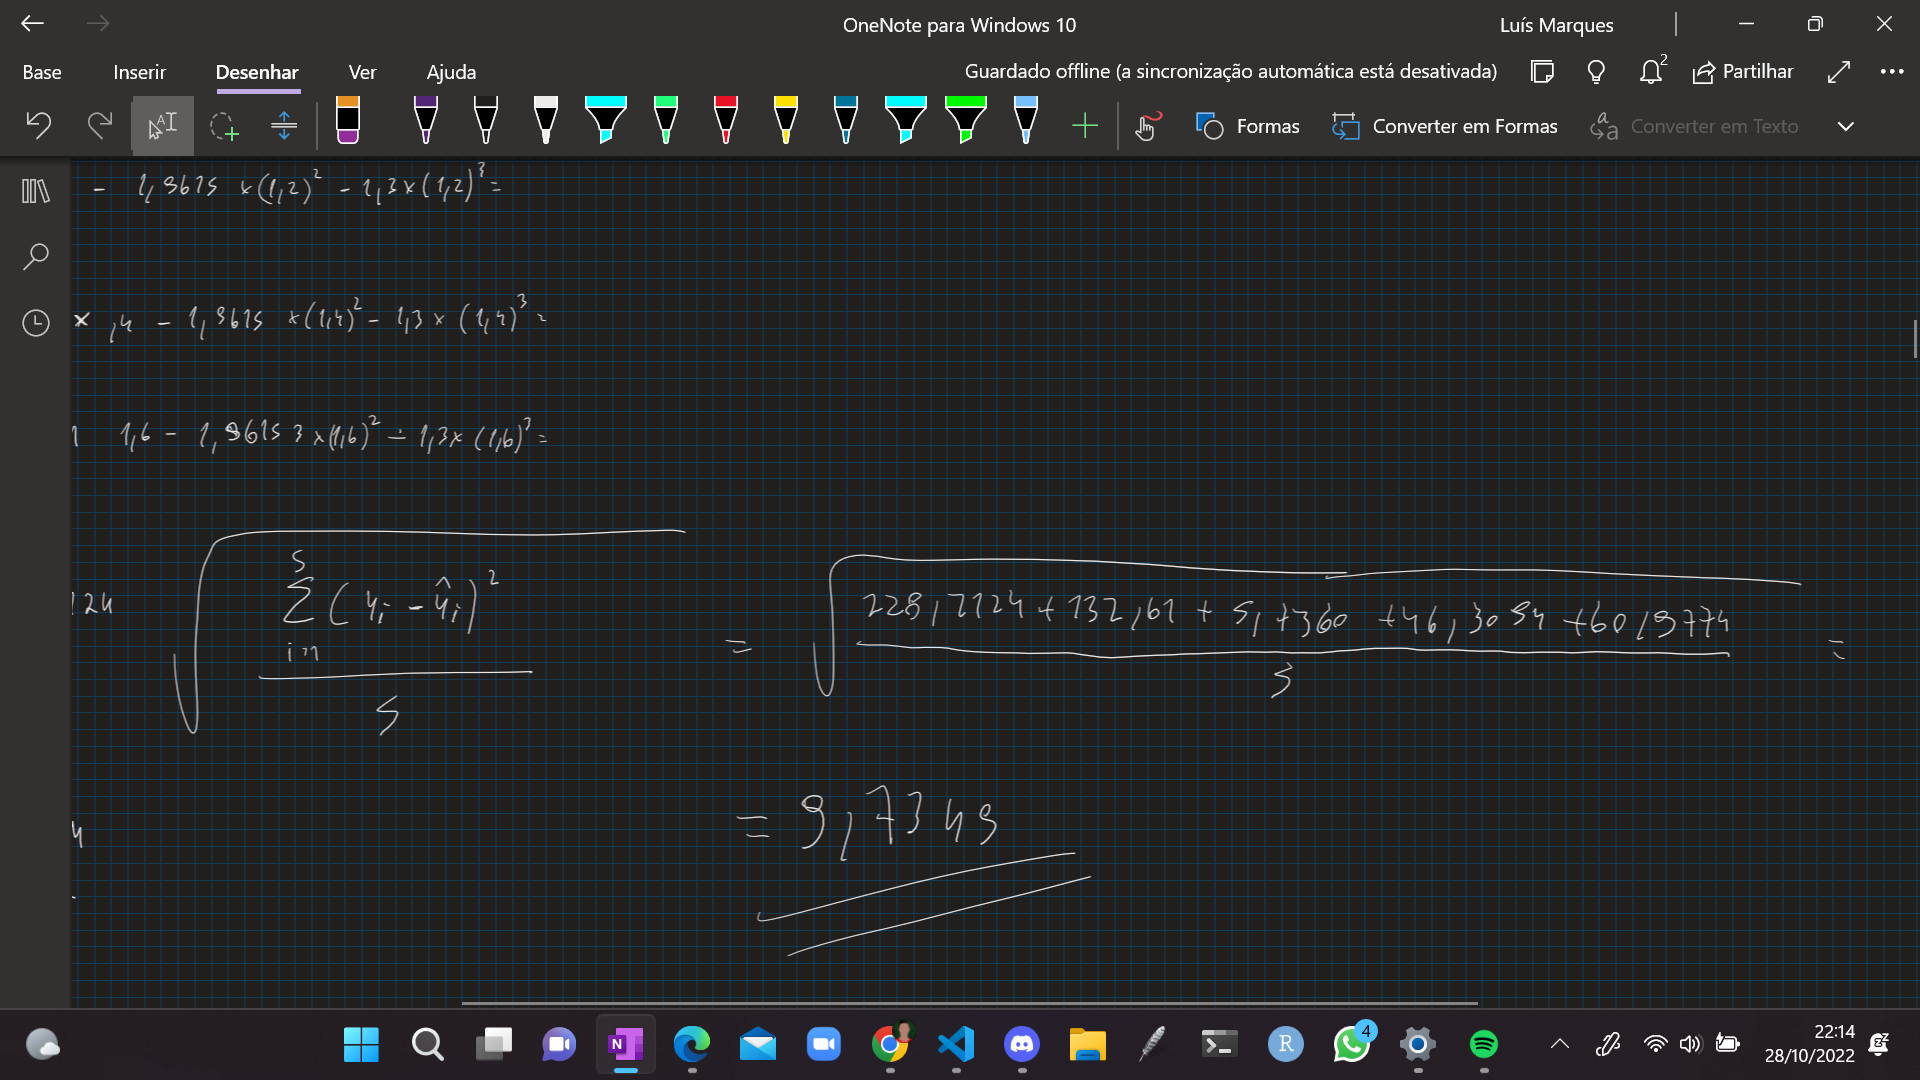 OneNote para Windows 10
Luís Marques
Base Inserir Desenhar Ver Ajuda
Guardado offline (a sincronização automática está desativada)
2
Partilhar
Formas
Converter em Formas
Converter em Texto
- 1,9615 × (1,2)² - 1,3 × (1,2)³ =
× 1,4 - 1,9615 × (1,4)² - 1,3 × (1,4)³ =
1,6 - 1,9615 3 × (1,6)² - 1,3 × (1,6)³ =
124
√( ∑ᵢ₌₁⁵ (yᵢ - ŷᵢ)² / 5 ) = √( (228,7124 + 132,61 + 5,7360 + 46,3094 + 60,9774) / 5 ) =
4
= 9,7349
4
22:14
28/10/2022